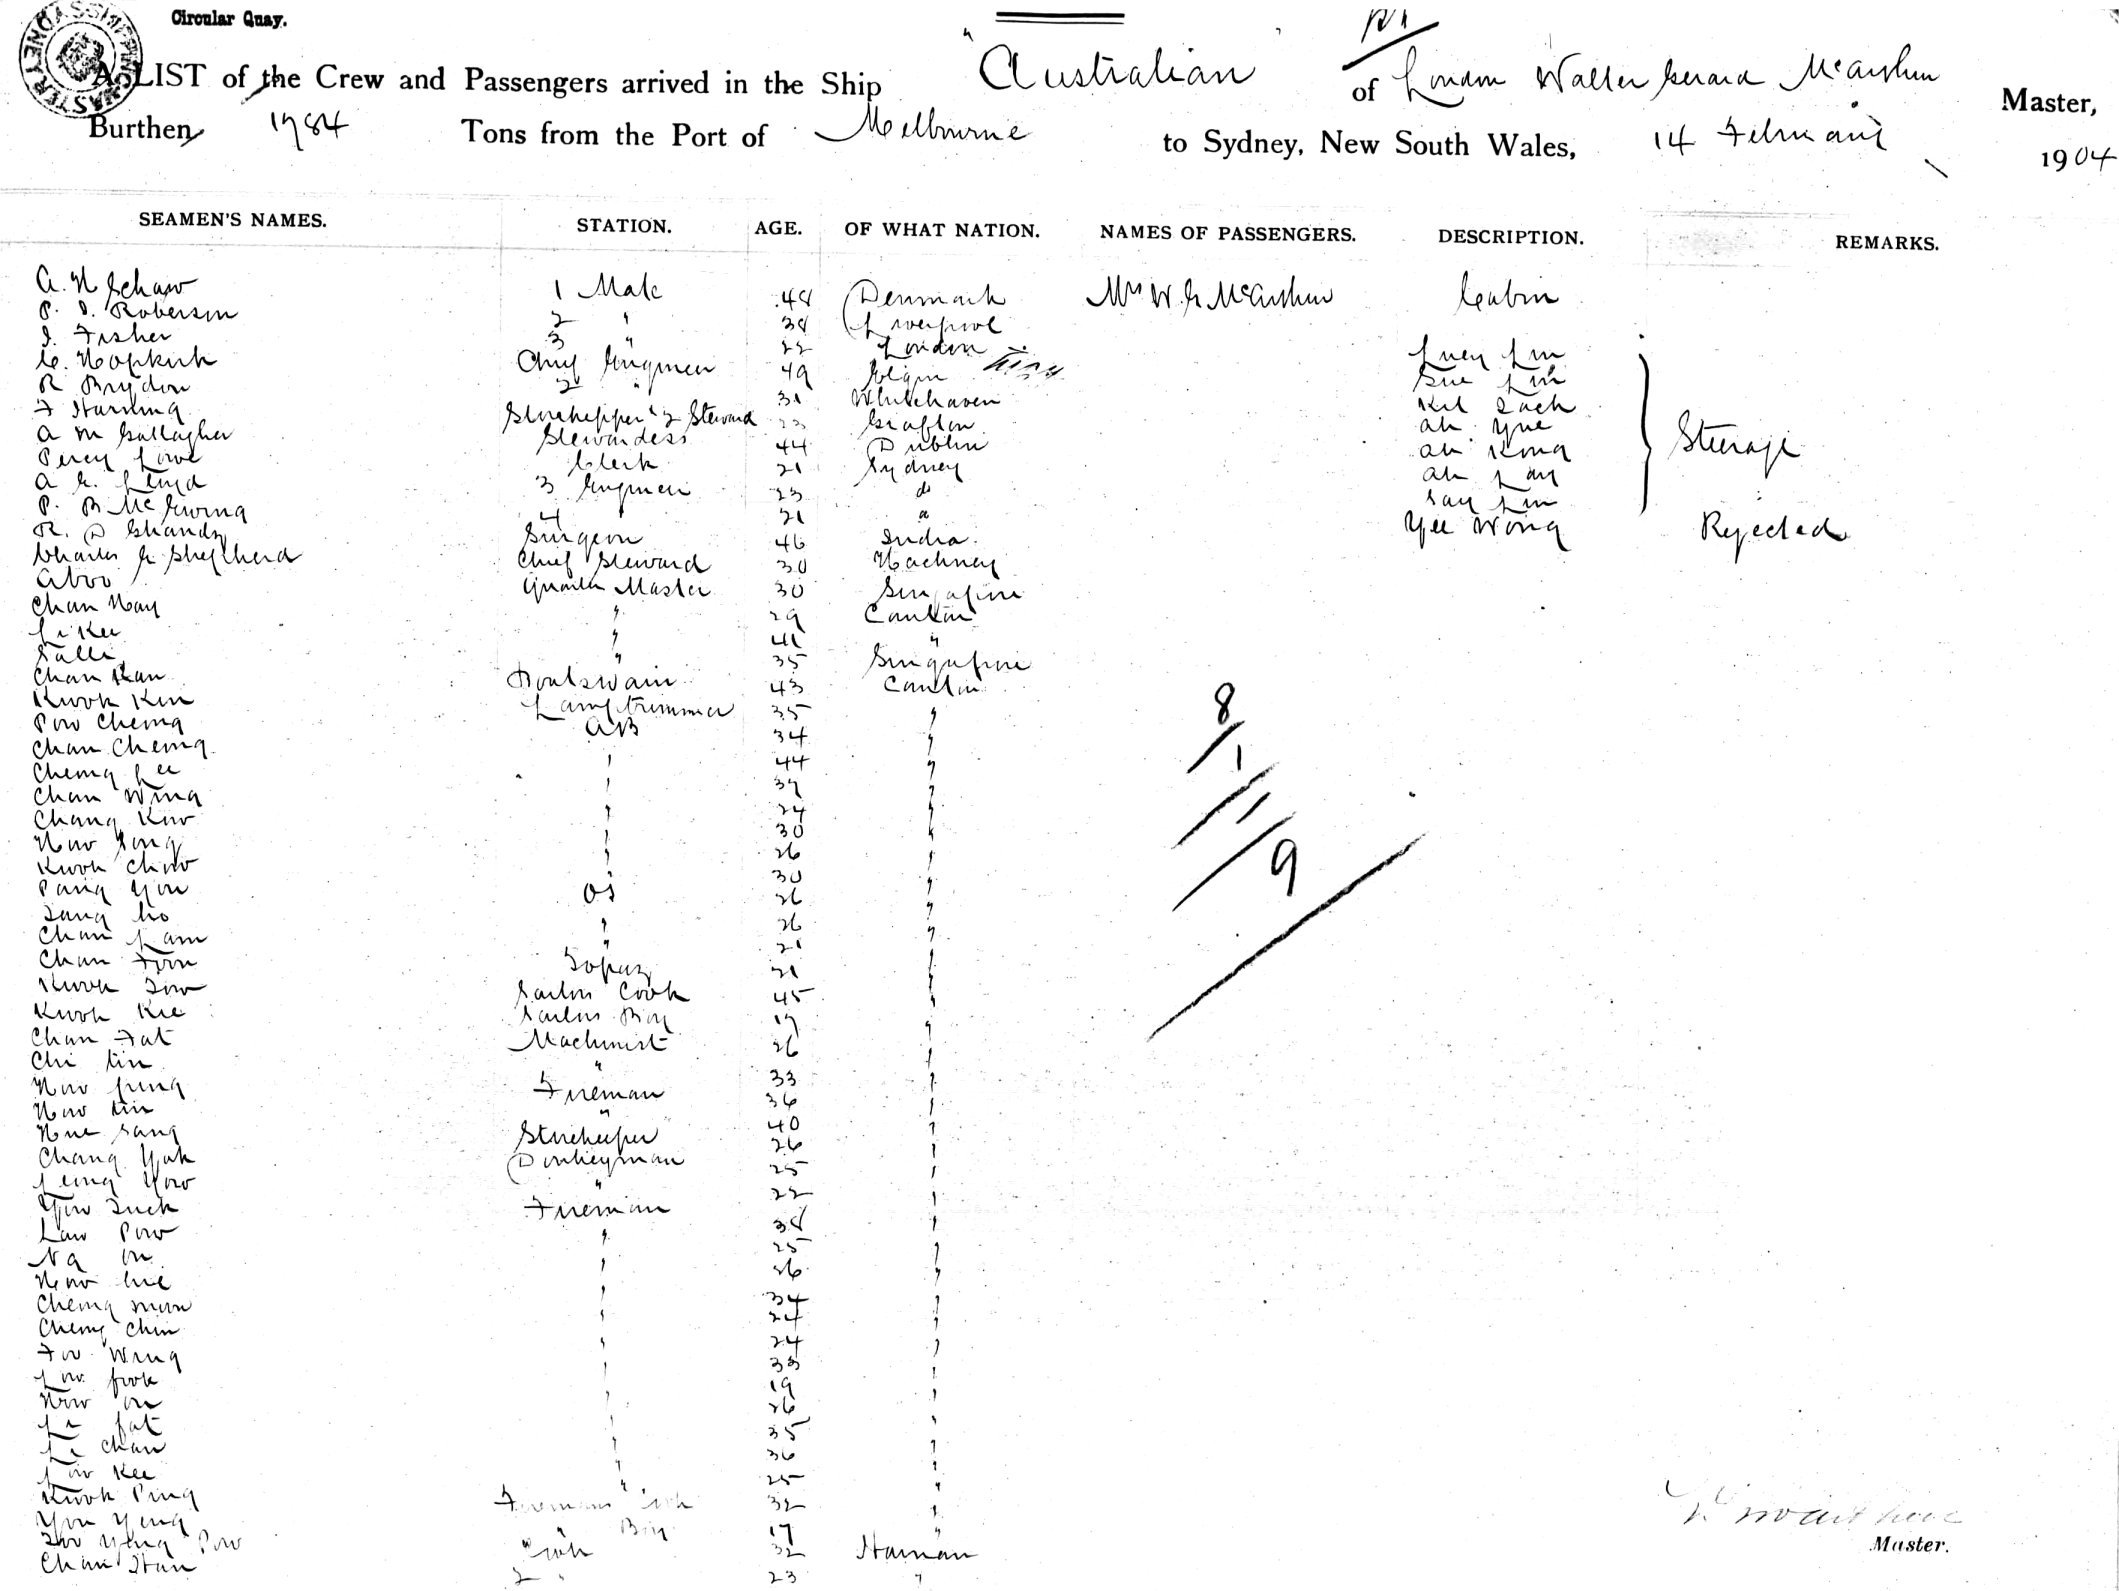 Circular Quay.
A LIST of the Crew and Passengers arrived in the Ship "Australian" of London Walter Gerard McArthur Master,
Burthen 1784 Tons from the Port of Melbourne to Sydney, New South Wales, 14 February 1904
SEAMEN'S NAMES. STATION. AGE. OF WHAT NATION. NAMES OF PASSENGERS. DESCRIPTION. REMARKS.
A. N Schaw 1 Mate 48 Denmark Mrs W. G McArthur Cabin
P. I. Roberson 2 " 38 Liverpool
J. Fisher 3 " 22 London
C. Hopkirk Chief Engineer 49 Elgin Lucy Lin
R Brydon 2 " 31 Whitehaven Sue Lin
F Harning Storekeeper & 2 Steward 23 Grafton Kit Zack
A M Gallagher Stewardess 44 Dublin Ah Yue
Percy Lowe Clerk 21 Sydney Ah Kong Steerage
A G. Lloyd 3 Engineer 23 do Ah Lay
P. B McEwing 4 " 21 do Say Lin
R. D Shands Surgeon 46 India Yee Wong Rejected
Charles G Shepherd Chief Steward 30 Hackney
Aboo Quarter Master 30 Singapore
Chan Hay " 29 Canton
Li Kee " 41 "
Salli " 35 Singapore
Chan Kan Boatswain 43 Canton
Kwok Kin Lamptrimmer 35 "
Pow Cheong AB 34 "
Chan Cheong " 44 "
Cheong Lee " 37 "
Chan Wing " 24 "
Chang Kow " 30 "
How Song " 26 "
Kwok Chow " 30 "
Pang You OS 26 "
Tang Ho " 26 "
Chan Lam " 21 "
Chan Foon Topaz 21 "
Kwok Tow Sailors Cook 45 "
Kwok Kie Sailors Boy 17 "
Chan Fat Machinist 26 "
Chi Tin " 33 "
How Jung Fireman 36 "
How Tin " 40 "
Hue Sang Storekeeper 26 "
Chang Yuk Donkeyman 25 "
Leong Yow " 22 "
Yow Tuck Fireman 38 "
Law Pow " 25 "
Na On " 26 "
How Hie " 34 "
Cheong Moon " 24 "
Cheong Chin " 24 "
Foo Wing " 33 "
Low Fook " 19 "
How On " 26 "
Li Fat " 35 "
Li Chan " 36 "
Low Kee " 25 "
Kwok Ping Firemans Cook 32 "
You Yeng " Boy 17 "
Foo Yeng Pow Cook 32 Hainan
Chan Han 2 " 23 "
8/1/11/9
Master.